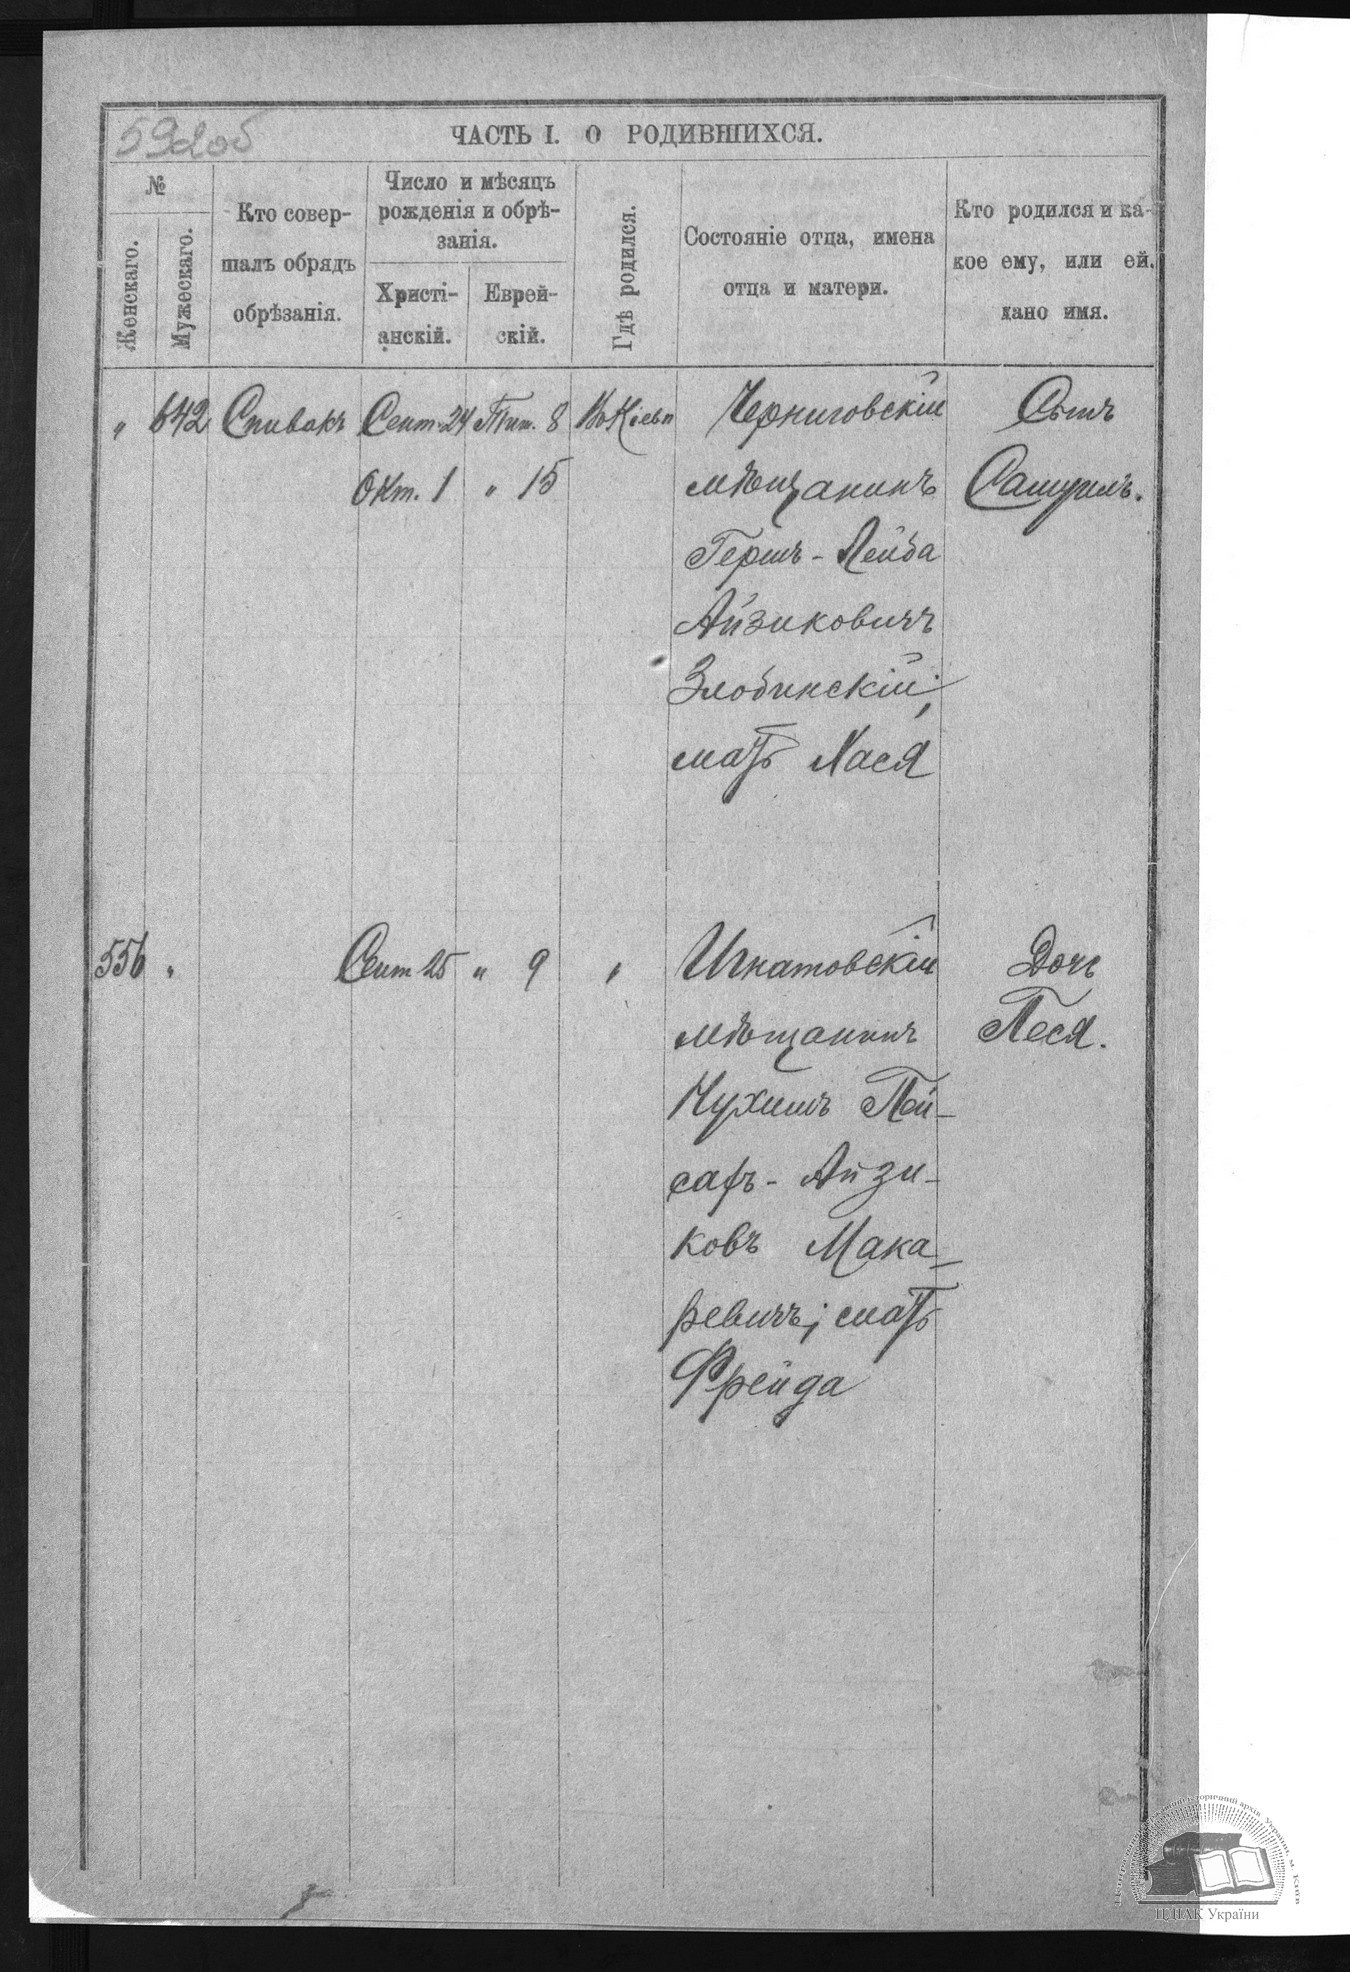 59доб
ЧАСТЬ I. О РОДИВШИХСЯ.
№
Женскаго.
Мужескаго.
Кто совер-
шалъ обрядъ
обрѣзанія.
Число и мѣсяцъ
рожденія и обрѣ-
занія.
Христі-
анскій.
Еврей-
скій.
Гдѣ родился.
Состояніе отца, имена
отца и матери.
Кто родился и ка-
кое ему, или ей,
дано имя.
" 642 Спивакъ Сент. 24 Тиш. 8 Въ Кіевѣ Черниговскій Сынъ
Окт. 1 " 15 мѣщанинъ Самуилъ.
Гершъ - Лейба
Айзиковичъ
Злобинскій;
мать Хася
556 " Сент 25 " 9 " Игнатовскій Дочь
мѣщанинъ Песя.
Нухимъ Пей-
сахъ - Айзи-
ковъ Мака-
ревичъ; мать
Фрейда
ЦДІАК України